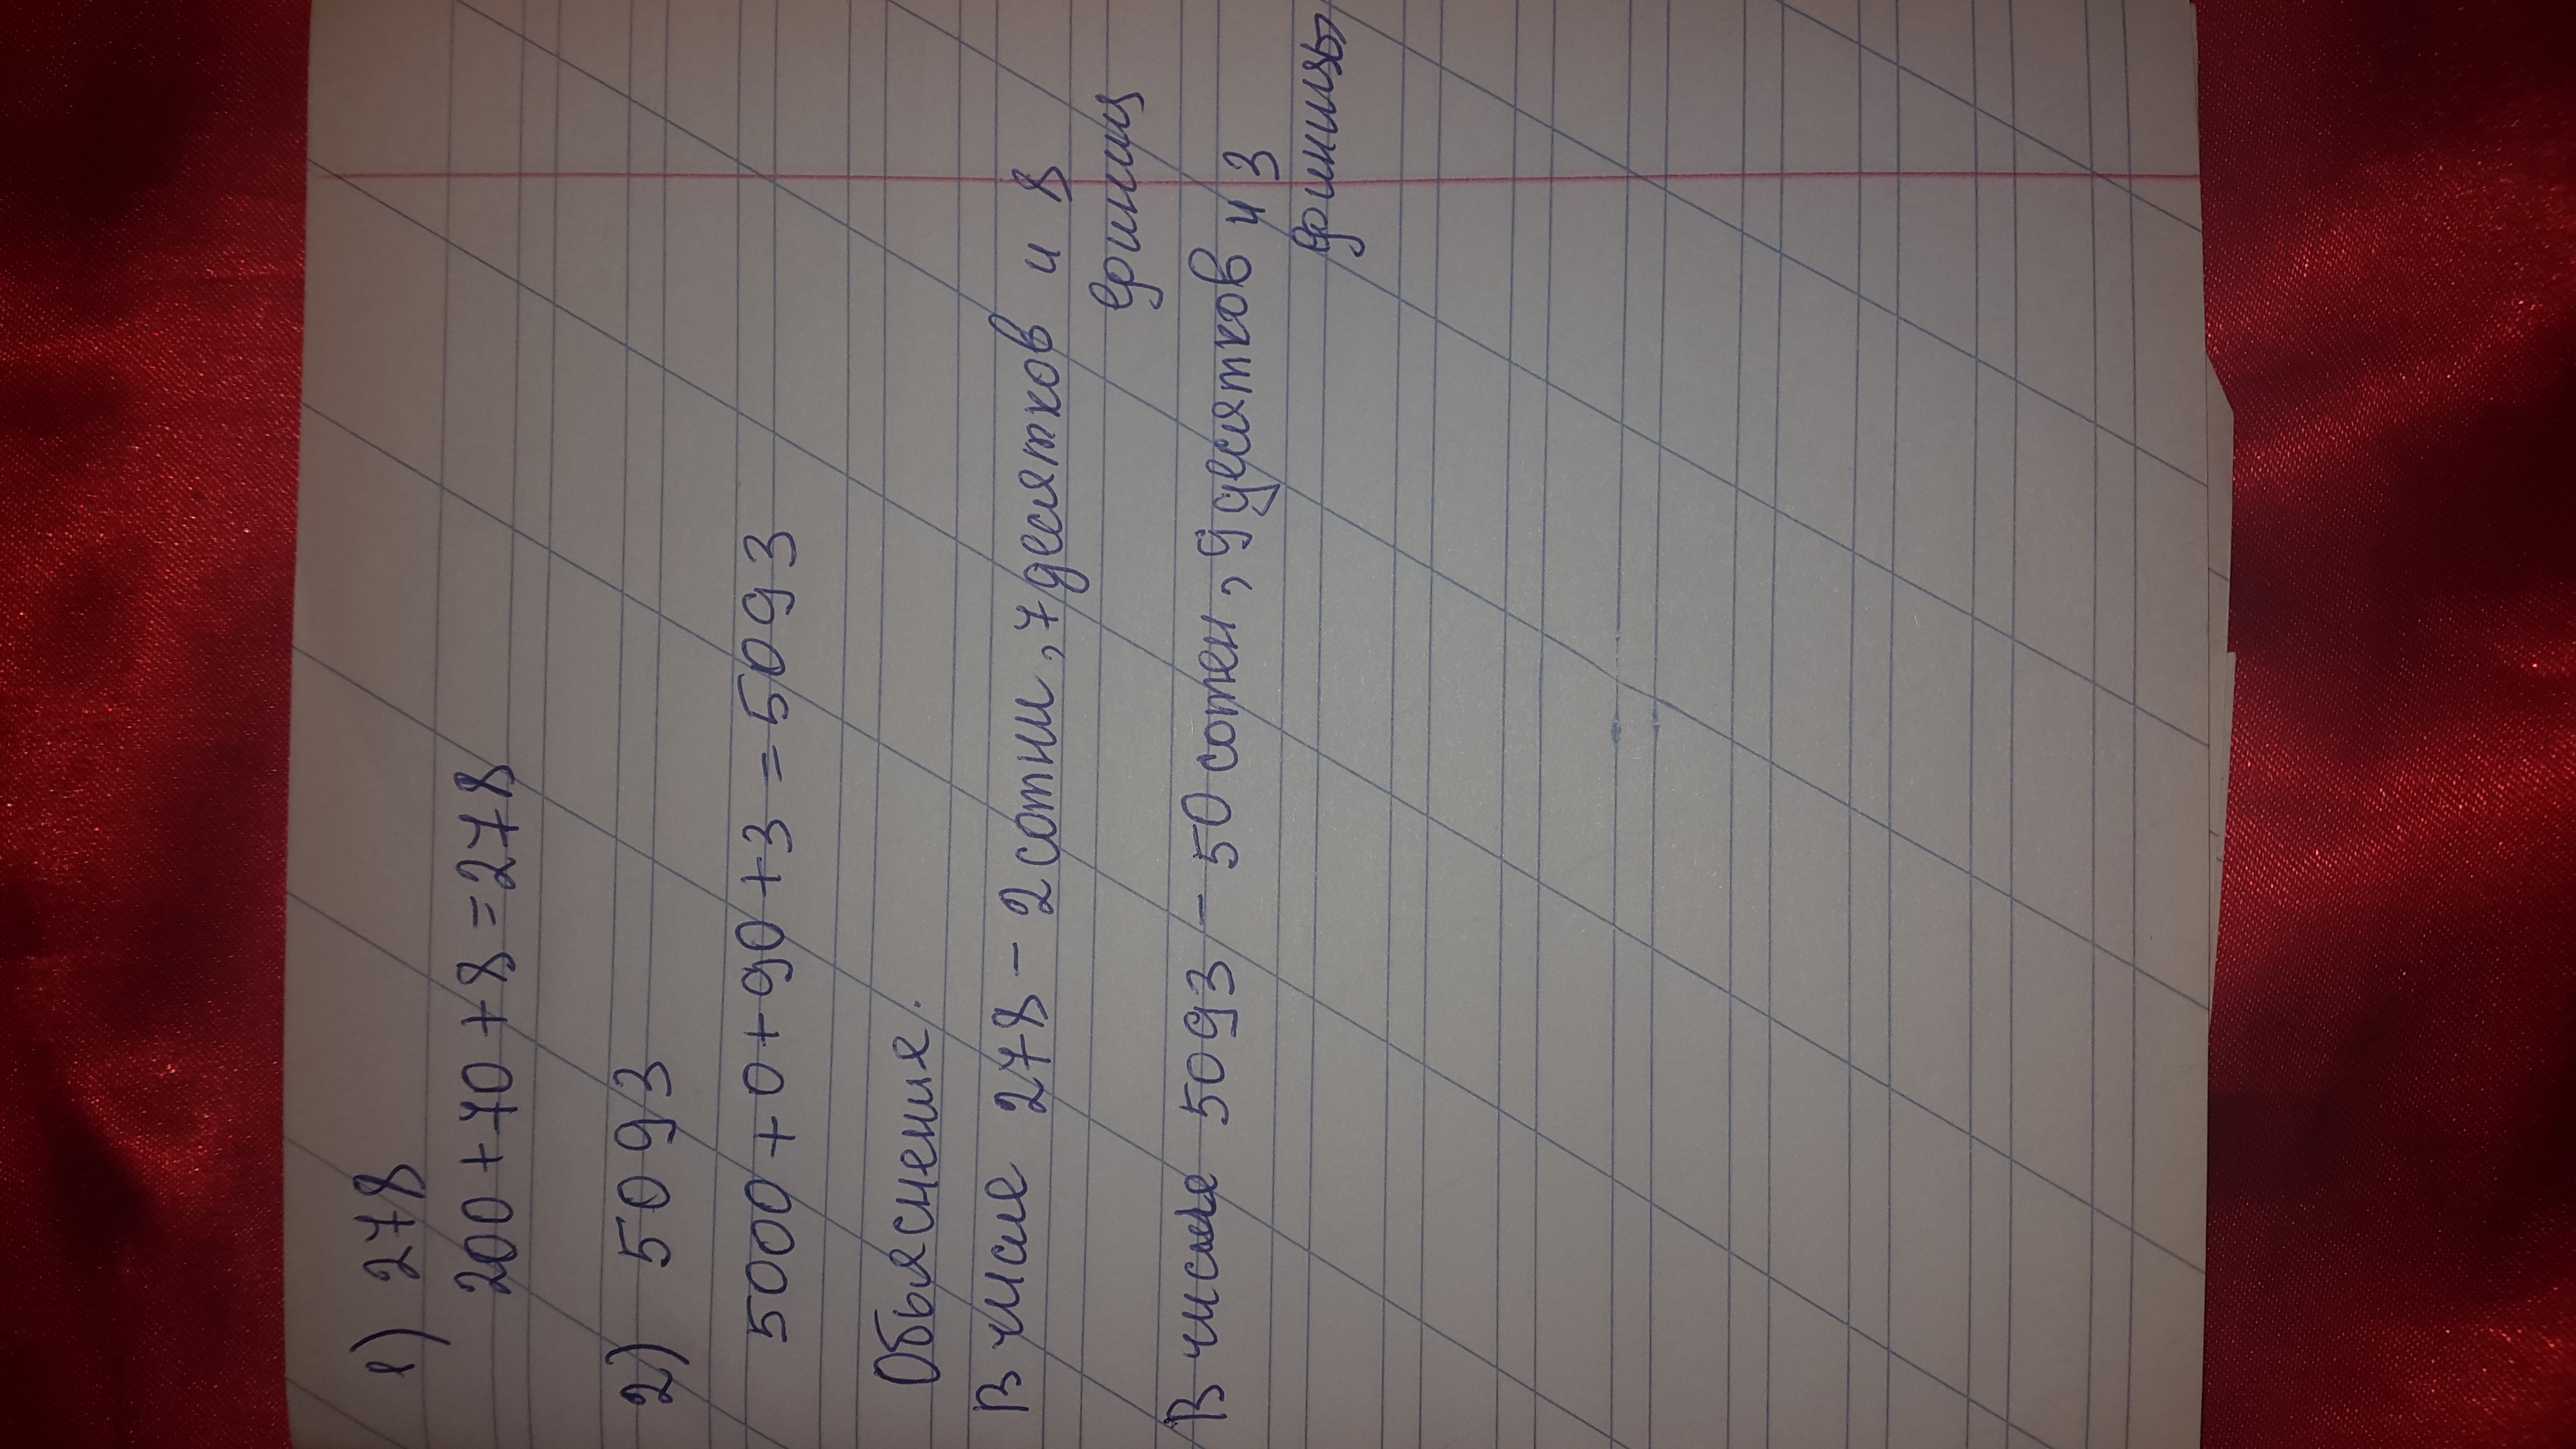 1) 278
200+70+8=278
2) 5093
5000+0+90+3=5093
Объяснение.
В числе 278 - 2 сотни, 7 десятков и 8
единиц
В числе 5093 - 50 сотен, 9 десятков и 3
единицы